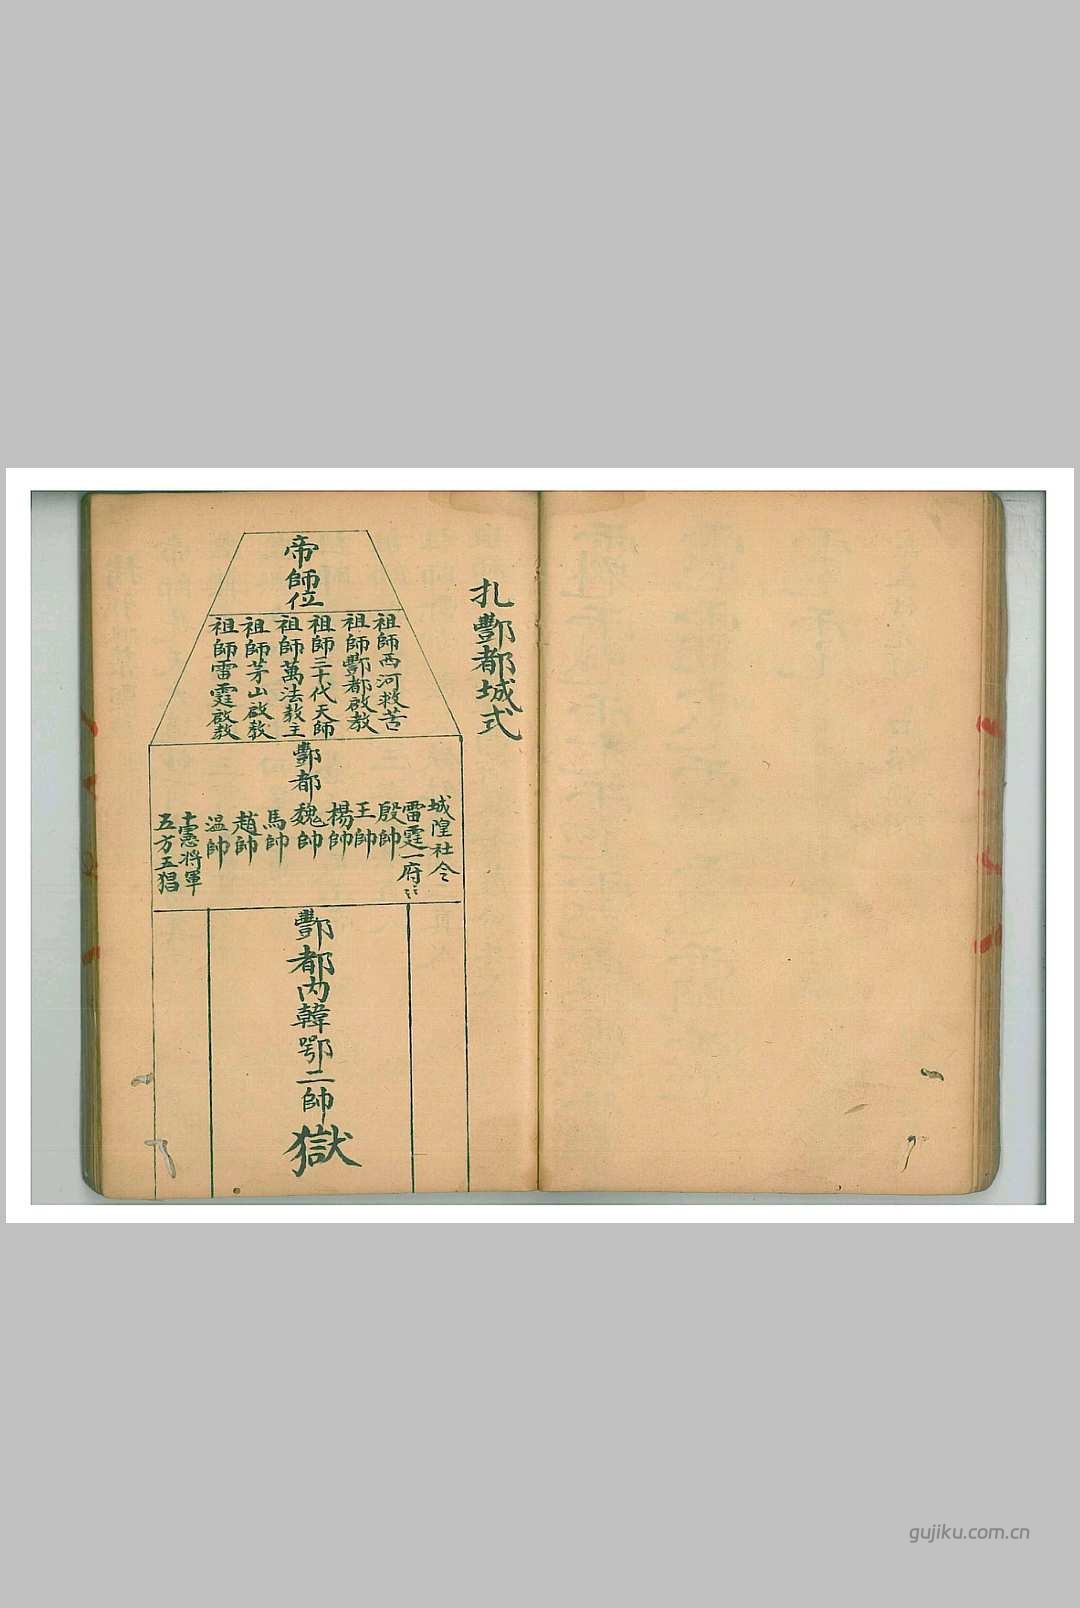 扎酆都城式
帝師位
祖師西河救苦
祖師酆都啟教
祖師三十代天師
祖師萬法教主
祖師茅山啟教
祖師雷霆啟教
酆都
城隍社令
雷霆一府
殷帥
王帥
楊帥
魏帥
馬帥
趙帥
温帥
土憲將軍
五方五猖
酆都内韓鄂二帥
獄
gujiku.com.cn